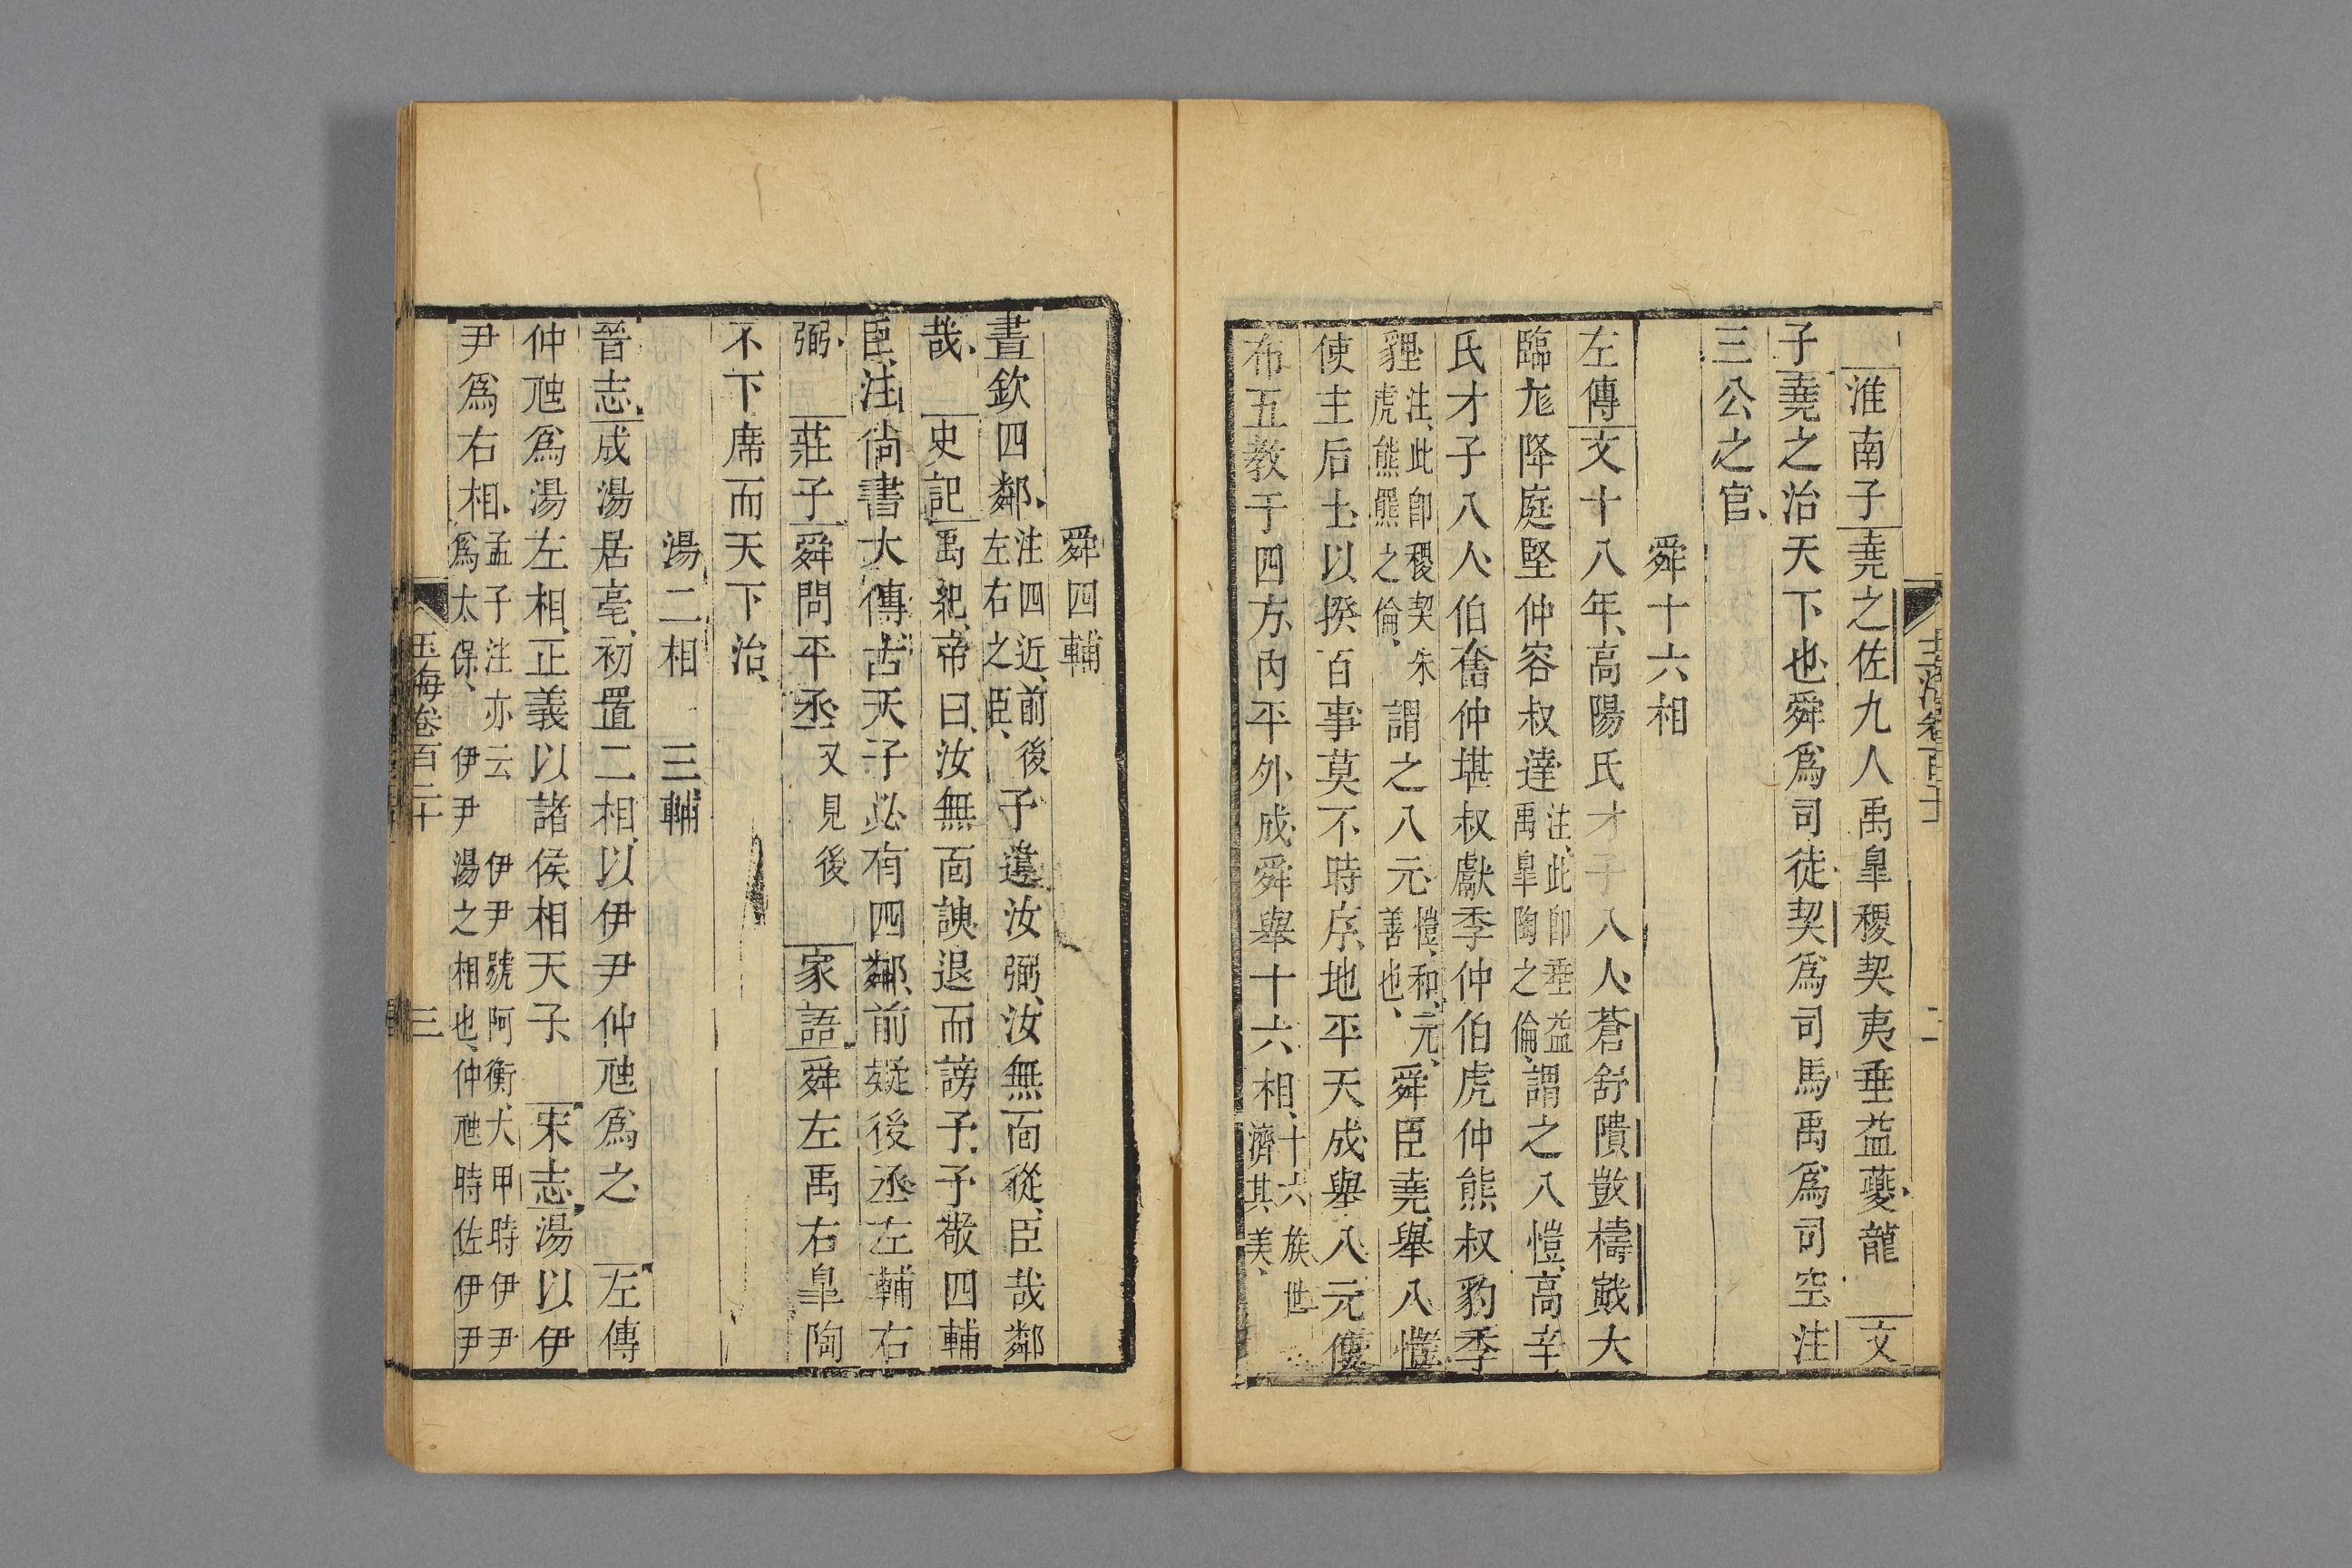 淮南子堯之佐九人禹臯稷契夷垂益夔龍 文
子堯之治天下也舜爲司徒契爲司馬禹爲司空注
三公之官
舜十六相
左傳文十八年高陽氏才子八人蒼舒隤敳檮戭大
臨尨降庭堅仲容叔達注此卽垂益禹臯陶之倫謂之八愷高辛
氏才子八人伯奮仲堪叔獻季仲伯虎仲熊叔豹季
貍注此卽稷契朱虎熊羆之倫謂之八元愷和元善也舜臣堯舉八愷
使主后土以揆百事莫不時序地平天成舉八元使
布五教于四方內平外成舜舉十六相十六族世濟其美
玉海卷百二十 二
舜四輔
書欽四鄰注四近前後左右之臣予違汝弼汝無面從臣哉鄰
哉 史記禹紀帝曰汝無面諛退而謗予予敬四輔
臣注尙書大傳古天子必有四鄰前疑後丞左輔右
弼 莊子舜問乎丞又見後 家語舜左禹右臯陶
不下席而天下治
湯二相 三輔
晉志成湯居亳初置二相以伊尹仲虺爲之 左傳
仲虺爲湯左相正義以諸侯相天子 宋志湯以伊
尹爲右相孟子注亦云伊尹號阿衡大甲時伊尹爲太保伊尹湯之相也仲虺時佐伊尹
玉海卷百二十 三